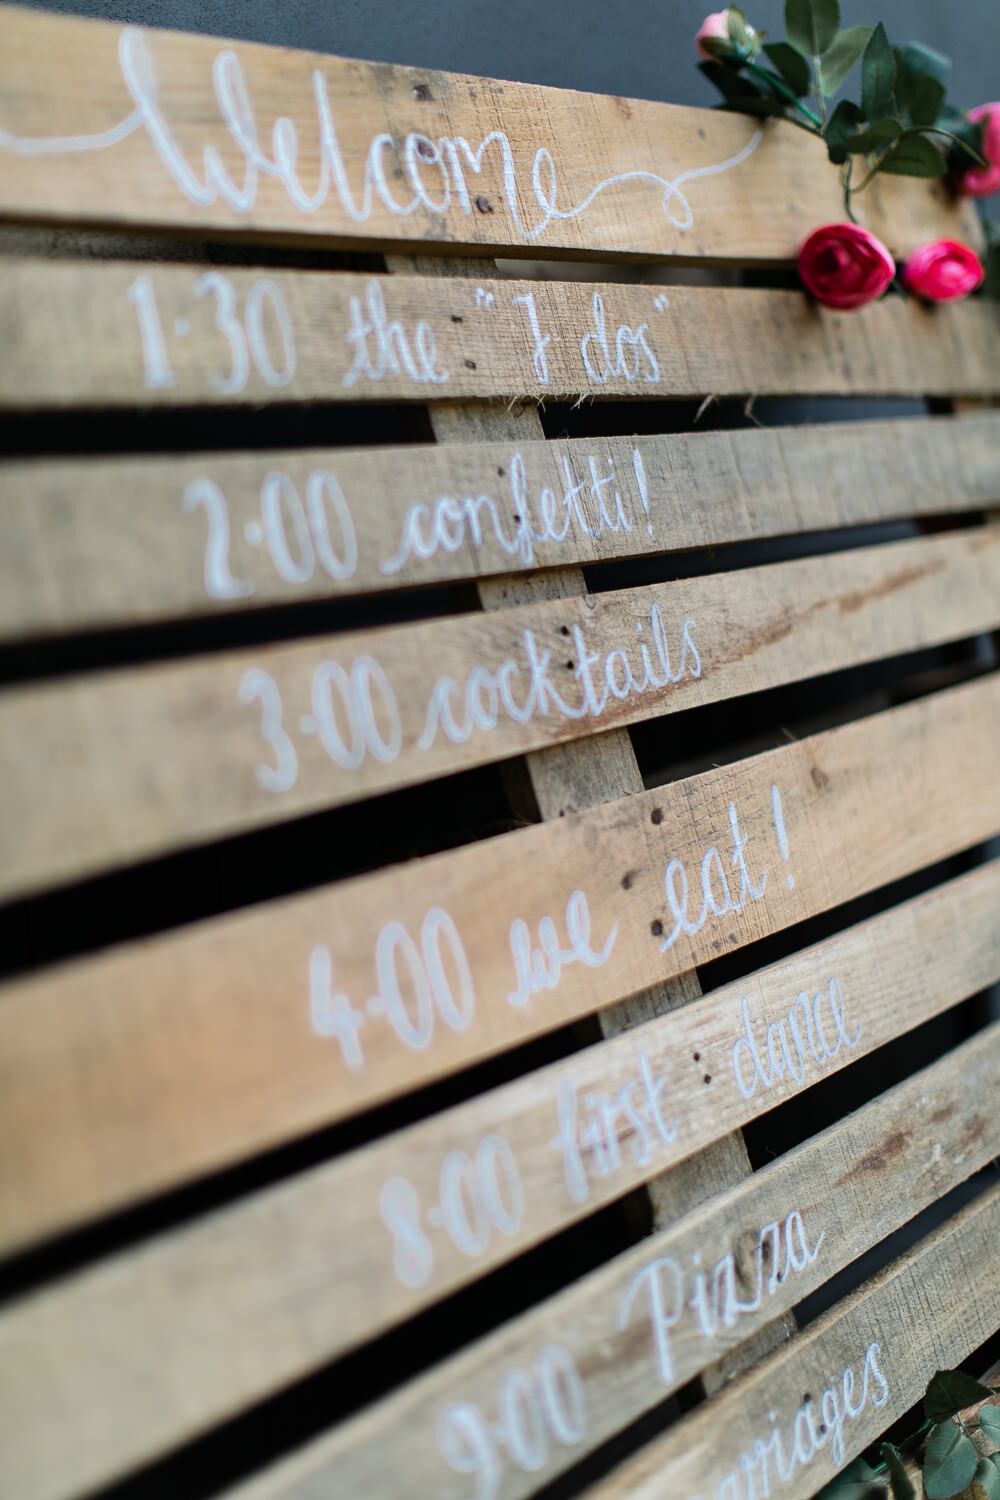 Welcome
1·30 the "I dos"
2·00 confetti!
3·00 cocktails
4·00 we eat!
8·00 first dance
9·00 Pizza